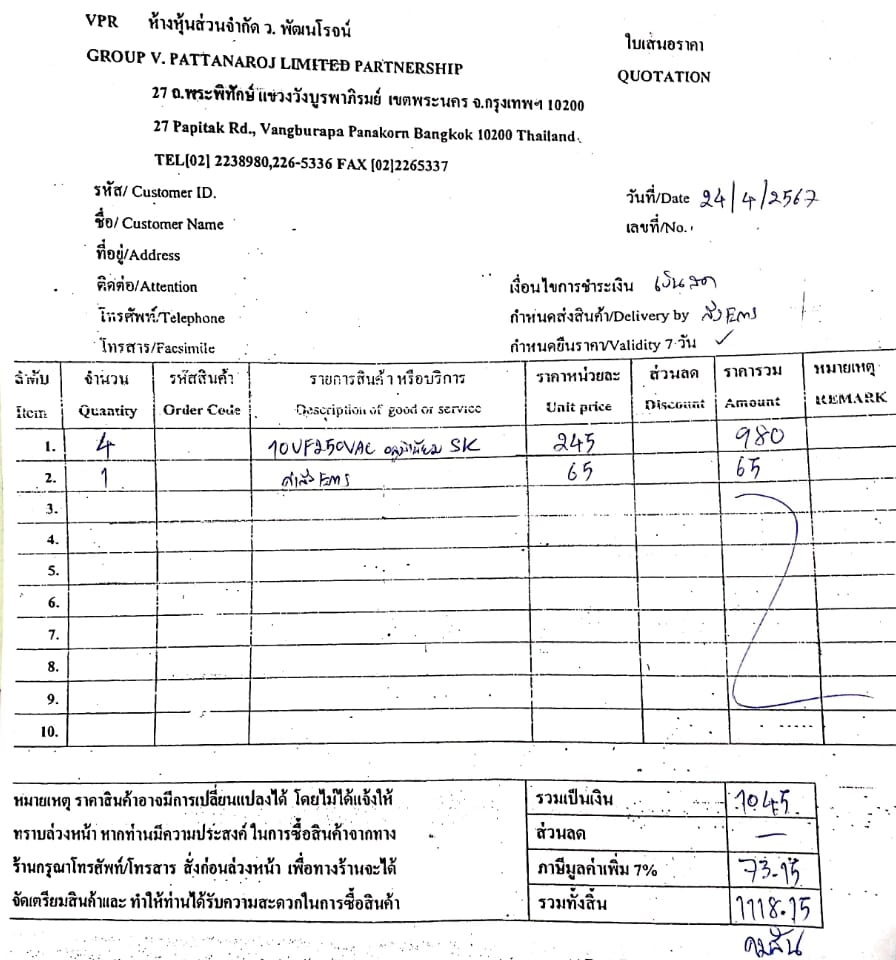 VPR ห้างหุ้นส่วนจำกัด ว. พัฒนโรจน์
ใบเสนอราคา
GROUP V. PATTANAROJ LIMITED PARTNERSHIP
QUOTATION
27 ถ.พระพิทักษ์ แขวงวังบูรพาภิรมย์ เขตพระนคร จ.กรุงเทพฯ 10200
27 Papitak Rd., Vangburapa Panakorn Bangkok 10200 Thailand.
TEL[02] 2238980,226-5336 FAX [02]2265337
รหัส/ Customer ID.
วันที่/Date 24/4/2567
ชื่อ/ Customer Name
เลขที่/No.
ที่อยู่/Address
ติดต่อ/Attention
เงื่อนไขการชำระเงิน เงินสด
โทรศัพท์/Telephone
กำหนดส่งสินค้า/Delivery by ส่ง EMS
โทรสาร/Facsimile
กำหนดยืนราคา/Validity 7 วัน ✓
ลำดับ จำนวน รหัสสินค้า รายการสินค้า หรือบริการ ราคาหน่วยละ ส่วนลด ราคารวม หมายเหตุ
Item Quantity Order Code Description of good or service Unit price Discount Amount REMARK
1. 4 10UF250VAC อลูมิเนียม SK 245 980
2. 1 ค่าส่ง EMS 65 65
3.
4.
5.
6.
7.
8.
9.
10.
หมายเหตุ ราคาสินค้าอาจมีการเปลี่ยนแปลงได้ โดยไม่ได้แจ้งให้
ทราบล่วงหน้า หากท่านมีความประสงค์ ในการซื้อสินค้าจากทาง
ร้านกรุณาโทรศัพท์/โทรสาร สั่งก่อนล่วงหน้า เพื่อทางร้านจะได้
จัดเตรียมสินค้าและ ทำให้ท่านได้รับความสะดวกในการซื้อสินค้า
รวมเป็นเงิน 1045.
ส่วนลด —
ภาษีมูลค่าเพิ่ม 7% 73.15
รวมทั้งสิ้น 1118.15
คมสัน